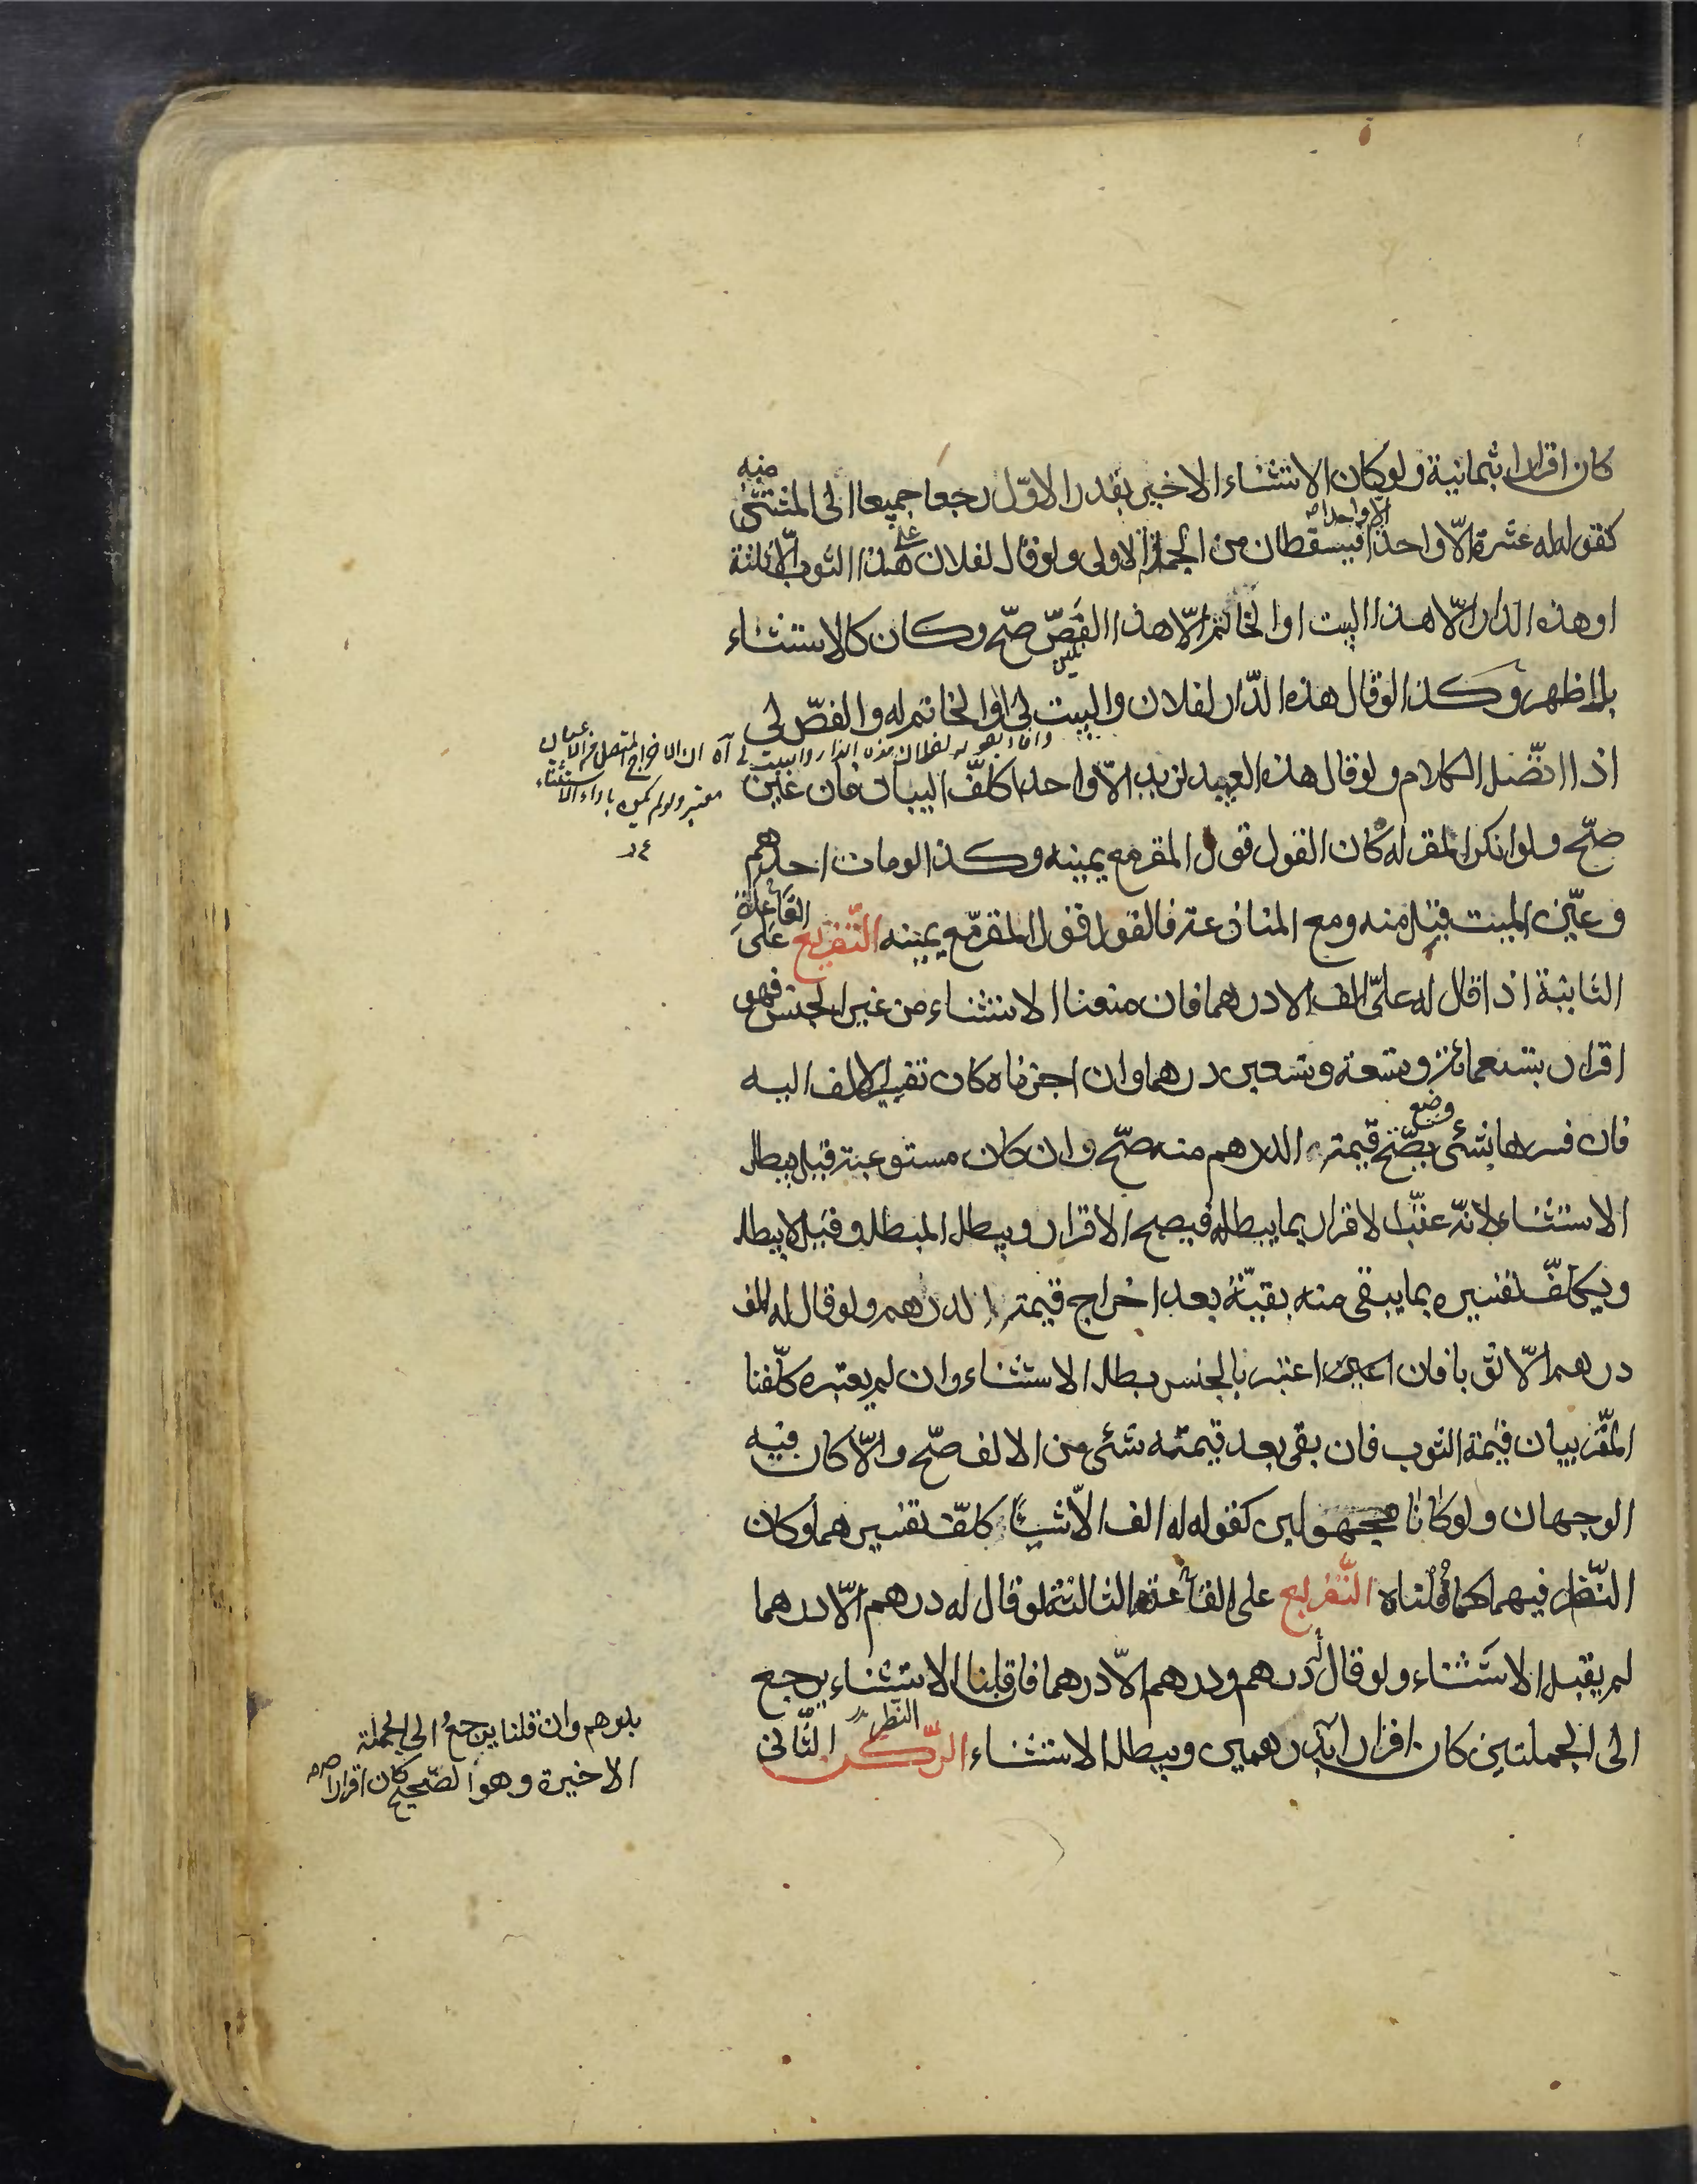 كان اقرارا بثمانية ولو كان الاستثناء الاخير بقدر الاول رجعا جميعا الى المستثنى منه
كقوله له عشرة الّا واحدا الّا واحدا فيسقطان من الجملة الاولى ولو قال لفلان علىّ هذا الثوب الّا ثلثه
او هذه الدار الّا هذا البيت او الخاتم الّا هذا الفصّ صحّ وكان كالاستثناء
بل اظهر وكذا لو قال هذه الدّار لفلان والبيت لى او الخاتم له والفصّ لى
اذا اتّصل الكلام ولو قال هذه العبيد لزيد الّا واحدا كلّف البيان فان عيّن
صحّ ولو انكر المقر له كان القول قول المقر مع يمينه وكذا لو مات احدهم
وعيّن الميت قبل منه ومع المنازعة فالقول قول المقرّ مع يمينه التّفريع على القاعدة
الثانية اذا قال له علىّ الف الا درهما فان منعنا الاستثناء من غير الجنس فهو
اقرار بتسعمائة وتسعة وتسعين درهما وان اجزناه كان تفسير الالف اليه
فان فسرها بشئ يصحّ وضع قيمة الدرهم منه صحّ وان كان مستوعبة قيل يبطل
الاستثناء لانّه عقّب الاقرار بما يبطله فيصح الاقرار ويبطل المبطل وقيل لا يبطل
ويكلّف تفسيره بما يبقى منه بقيّة بعد اخراج قيمة الدرهم ولو قال له الف
درهم الّا ثوبا فان اعتبرنا الجنس بطل الاستثناء وان لم يعتبره كلّفنا
المقرّ بيان قيمة الثوب فان بقى بعد قيمته شئ من الالف صحّ والّا كان فيه
الوجهان ولو كانا مجهولين كقوله له الف الّا شيئا كلّف تفسيرهما وكان
النّظر فيهما كما قلناه التّفريع على القاعدة الثالثة لو قال له درهم الّا درهما
لم يقبل الاستثناء ولو قال له درهم ودرهم الّا درهما فان قلنا الاستثناء يرجع
الى الجملتين كان اقرارا بدرهمين ويبطل الاستثناء الرّكن الثّانى
معتبر ولو لم يكن باداة الاستثناء
بدرهم وان قلنا يرجع الى الجملة
الاخيرة وهو الصّحيح كان اقرارا